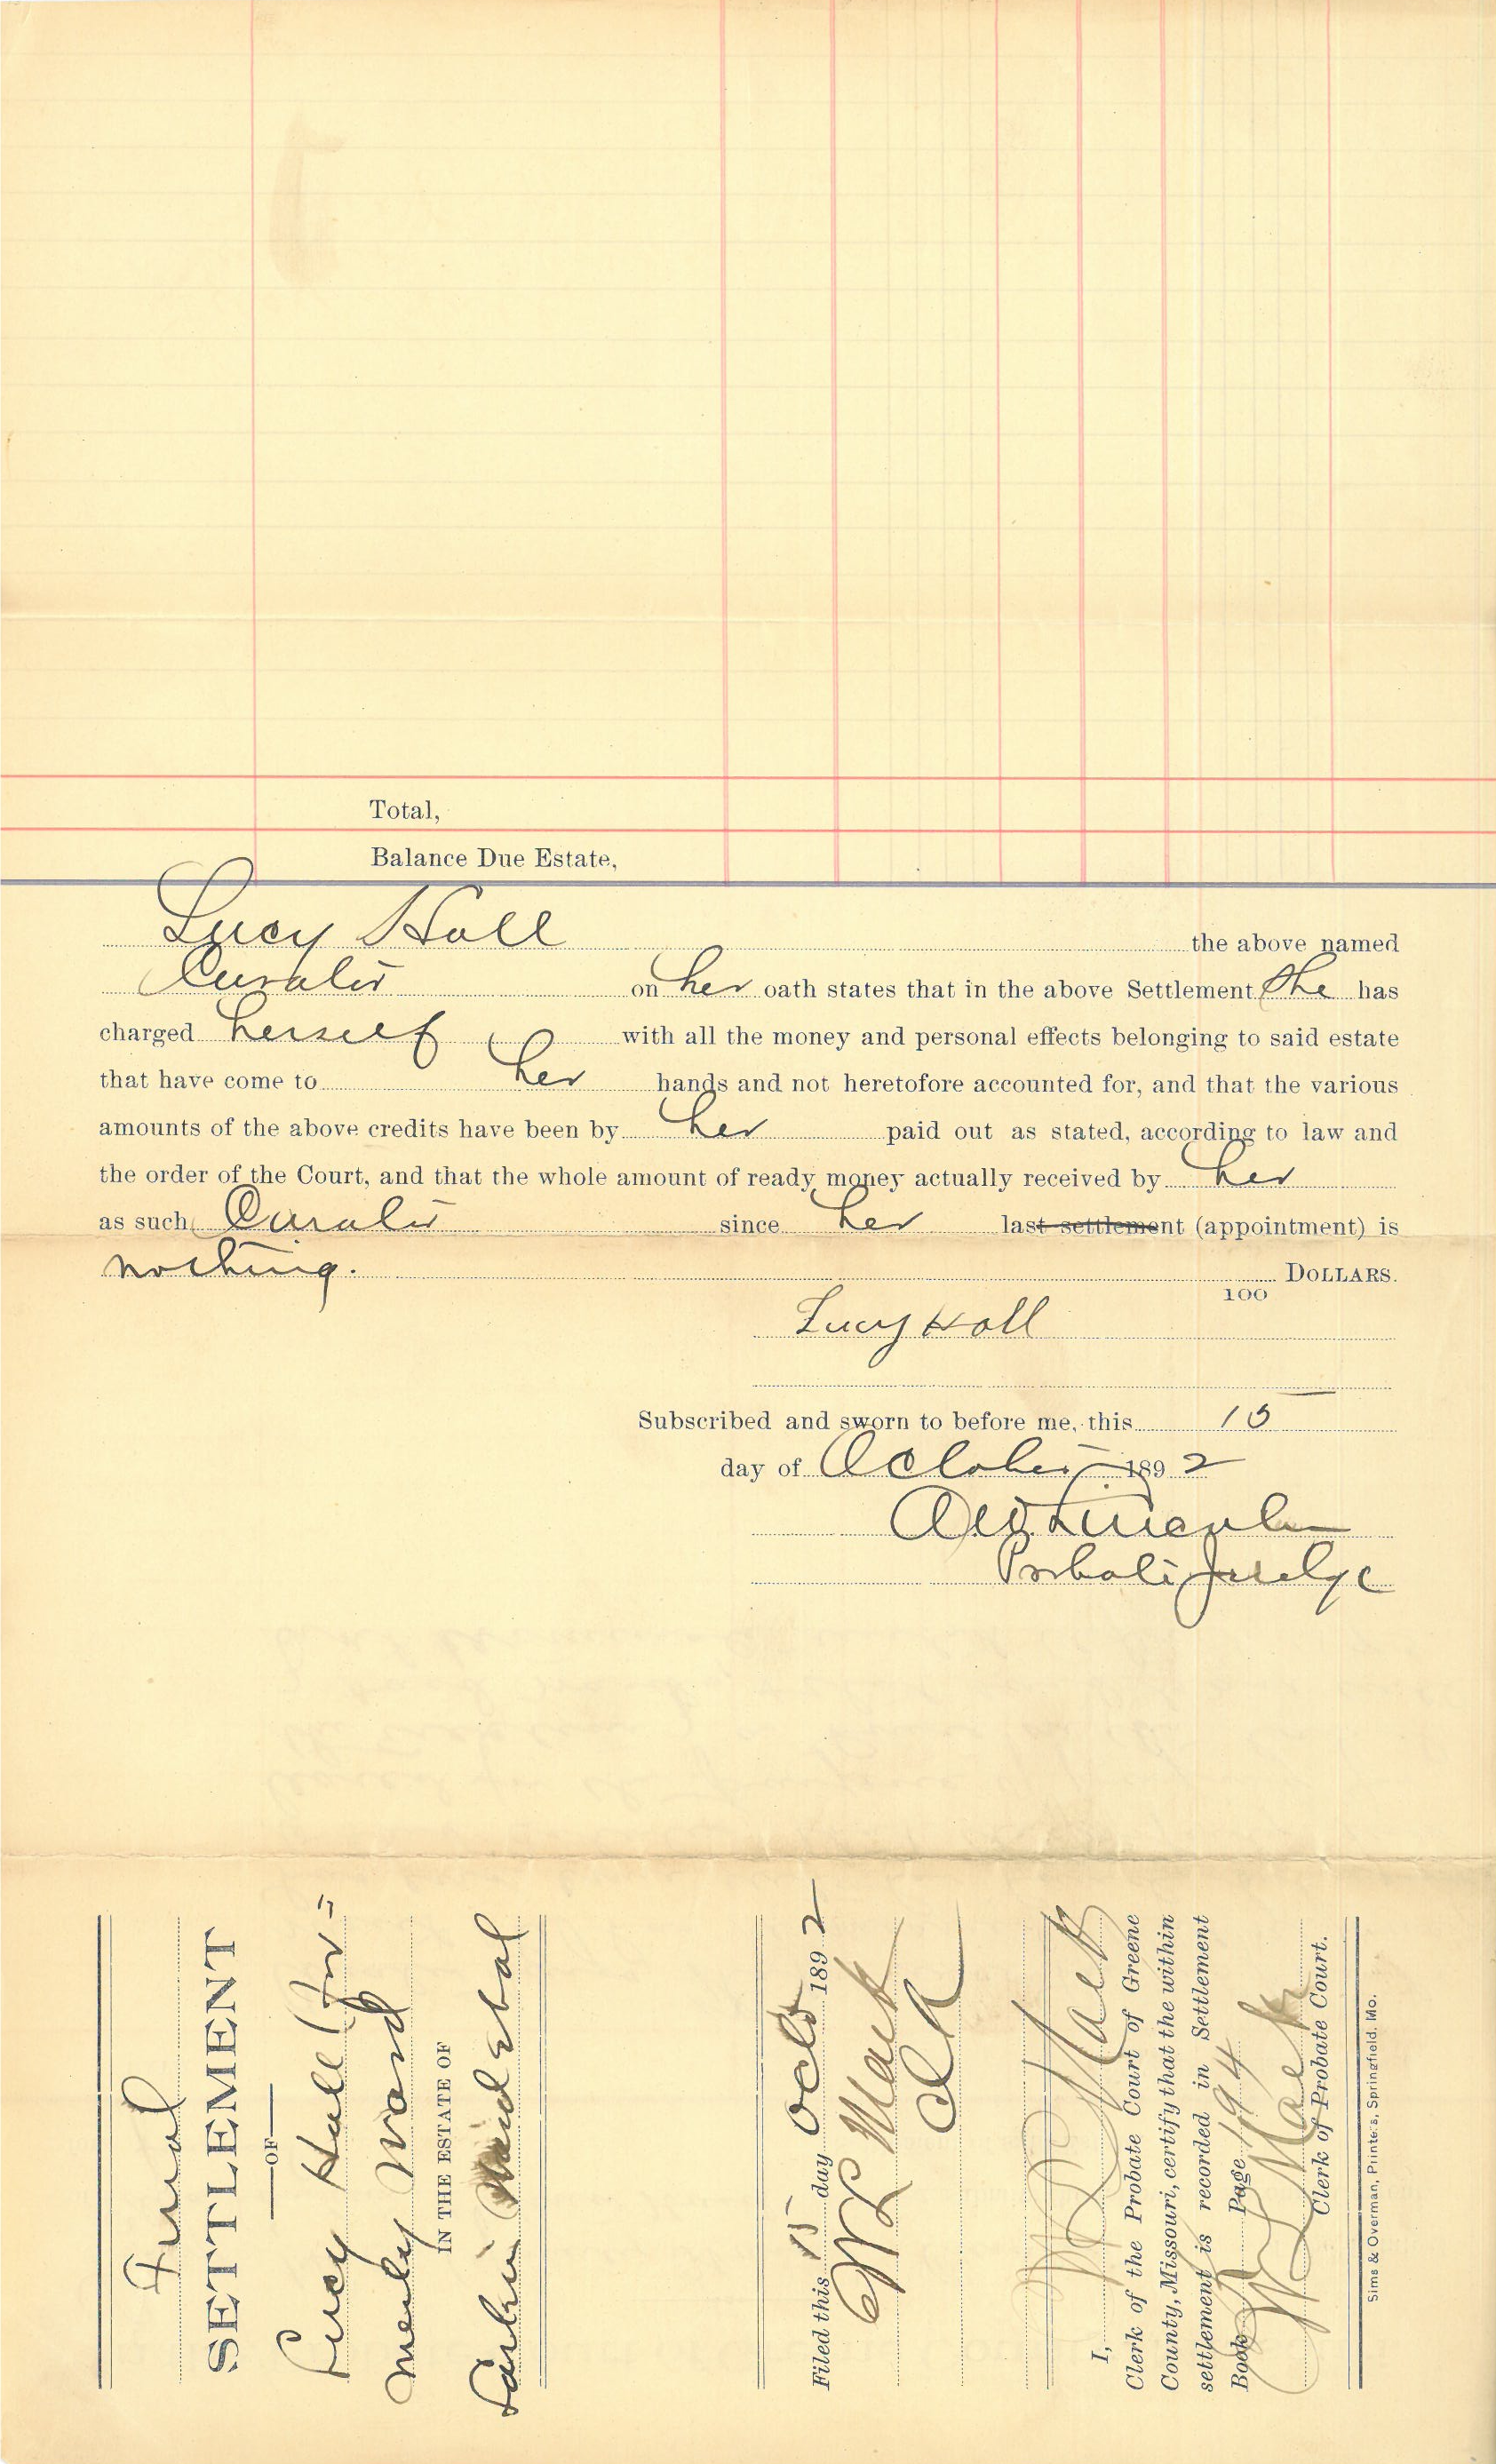 Total,
Balance Due Estate,
Lucy Hall the above named
Curator on her oath states that in the above Settlement she has
charged herself with all the money and personal effects belonging to said estate
that have come to her hands and not heretofore accounted for, and that the various
amounts of the above credits have been by her paid out as stated, according to law and
the order of the Court, and that the whole amount of ready money actually received by her
as such Curator since her last settlement (appointment) is
nothing. DOLLARS.
100
Lucy Hall
Subscribed and sworn to before me, this 15
day of October 1892
Lincoln
Probate Judge
Final
SETTLEMENT
OF
Lucy Hall (for=
merly Ward
IN THE ESTATE OF
et al
Filed this 15 day Oct 1892
I,
Clerk of the Probate Court of Greene
County, Missouri, certify that the within
settlement is recorded in Settlement
Book Page 194
Clerk of Probate Court.
Sims & Overman, Printers, Springfield, Mo.